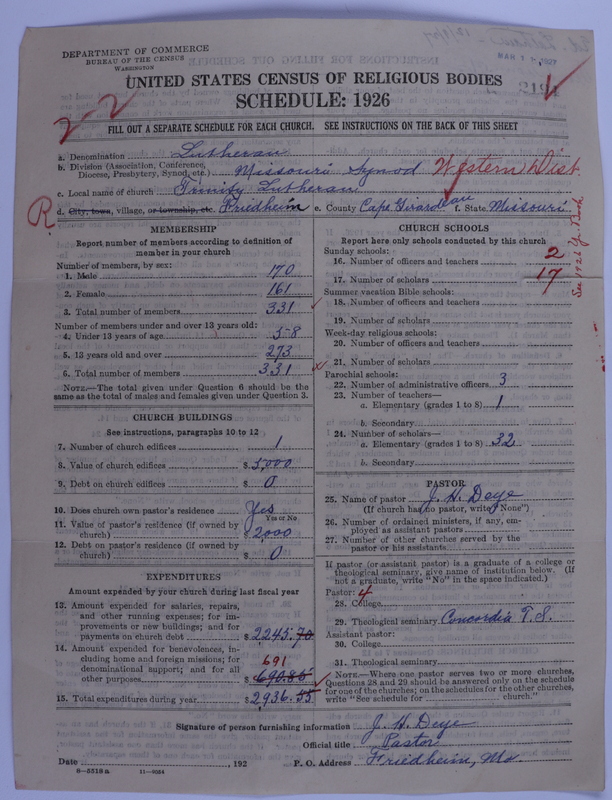 DEPARTMENT OF COMMERCE
BUREAU OF THE CENSUS
WASHINGTON
MAR 1 1927
2194
UNITED STATES CENSUS OF RELIGIOUS BODIES
SCHEDULE: 1926
2-2
FILL OUT A SEPARATE SCHEDULE FOR EACH CHURCH. SEE INSTRUCTIONS ON THE BACK OF THIS SHEET
a. Denomination Lutheran
b. Division (Association, Conference, Diocese, Presbytery, Synod, etc.) Missouri Synod Western Dist.
c. Local name of church Trinity Lutheran
R d. City, town, village, or township, etc. Friedheim e. County Cape Girardeau f. State Missouri
MEMBERSHIP
Report number of members according to definition of
member in your church
Number of members, by sex:
1. Male 170
2. Female 161
3. Total number of members 331
Number of members under and over 13 years old:
4. Under 13 years of age 58
5. 13 years old and over 273
6. Total number of members 331
NOTE.—The total given under Question 6 should be
same as the total of males and females given under Question 3.
CHURCH BUILDINGS
See instructions, paragraphs 10 to 12
7. Number of church edifices 1
8. Value of church edifices $ 5,000
9. Debt on church edifices $ 0
10. Does church own pastor's residence Yes
Yes or No
11. Value of pastor's residence (if owned by
church) $ 2000
12. Debt on pastor's residence (if owned by
church) $ 0
EXPENDITURES
Amount expended by your church during last fiscal year
13. Amount expended for salaries, repairs,
and other running expenses; for im-
provements or new buildings; and for
payments on church debt $ 2245.70
14. Amount expended for benevolences, in-
cluding home and foreign missions; for
denominational support; and for all
691
other purposes $ 690.85
15. Total expenditures during year $ 2936.55
CHURCH SCHOOLS
Report here only schools conducted by this church
Sunday schools:
16. Number of officers and teachers 2
17. Number of scholars 17
See 1926 Yr. Book
Summer vacation Bible schools:
18. Number of officers and teachers
19. Number of scholars
Week-day religious schools:
20. Number of officers and teachers
21. Number of scholars
Parochial schools:
22. Number of administrative officers 3
23. Number of teachers—
a. Elementary (grades 1 to 8) 1
b. Secondary
24. Number of scholars—
a. Elementary (grades 1 to 8) 32
b. Secondary
PASTOR
25. Name of pastor J. H. Deye
(If church has no pastor, write "None")
26. Number of ordained ministers, if any, em-
ployed as assistant pastors
27. Number of other churches served by the
pastor or his assistants
If pastor (or assistant pastor) is a graduate of a college or
theological seminary, give name of institution below. (If
not a graduate, write "No" in the space indicated.)
Pastor: 4
28. College
29. Theological seminary Concordia T. S.
Assistant pastor:
30. College
31. Theological seminary
NOTE.—Where one pastor serves two or more churches,
Questions 28 and 29 should be answered only on the schedule
for one of the churches; on the schedules for the other churches,
write "See schedule for church."
Signature of person furnishing information J. H. Deye
Official title Pastor
Date , 192 P. O. Address Friedheim, Mo.
8—5518a 11—9554